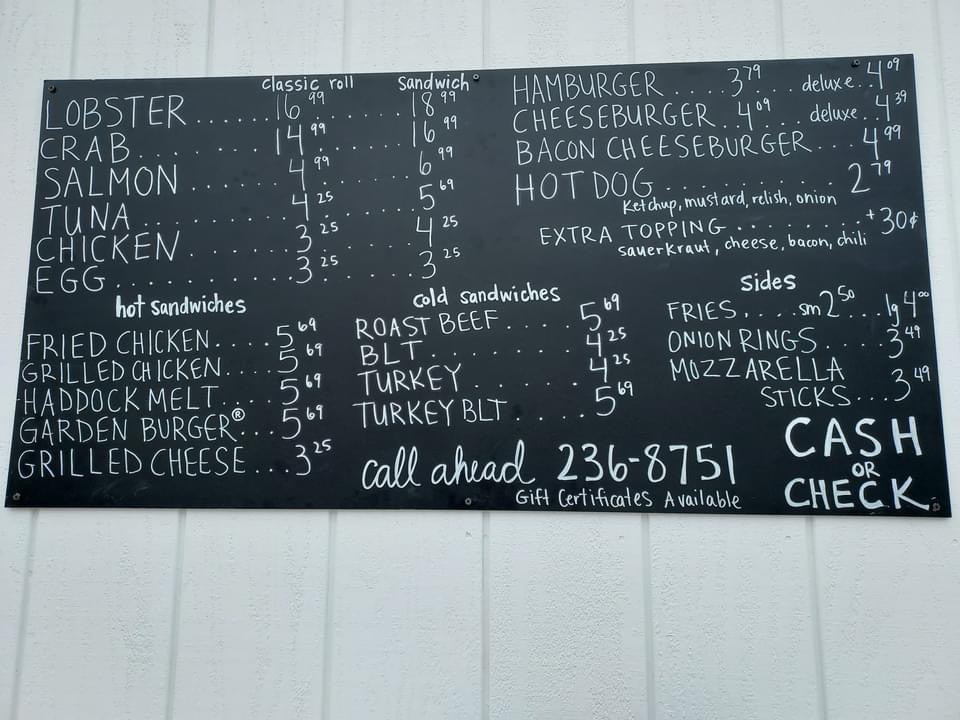 classic roll sandwich
LOBSTER 16.99 18.99
CRAB 14.99 16.99
SALMON 4.99 6.99
TUNA 4.25 5.69
CHICKEN 3.25 4.25
EGG 3.25 3.25
HAMBURGER 3.79 deluxe 4.09
CHEESEBURGER 4.09 deluxe 4.39
BACON CHEESEBURGER 4.99
HOT DOG 2.79
Ketchup, mustard, relish, onion
EXTRA TOPPING +30¢
sauerkraut, cheese, bacon, chili
hot sandwiches
FRIED CHICKEN 5.69
GRILLED CHICKEN 5.69
HADDOCK MELT 5.69
GARDEN BURGER® 5.69
GRILLED CHEESE 3.25
cold sandwiches
ROAST BEEF 5.69
BLT 4.25
TURKEY 4.25
TURKEY BLT 5.69
sides
FRIES sm 2.50 lg 4.00
ONION RINGS 3.49
MOZZARELLA
STICKS 3.49
call ahead 236-8751
Gift Certificates Available
CASH
OR
CHECK